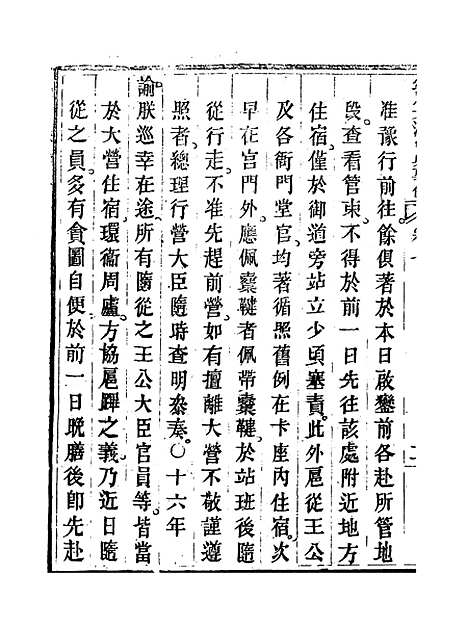 准豫行前往餘俱著於本日啟鑾前各赴所管地
段查看管束不得於前一日先往該處附近地方
住宿僅於御道旁站立少頃塞責此外扈從王公
及各衙門堂官均著循照舊例在卡座內住宿次
早在宮門外應佩櫜鞬者佩帶櫜鞬於站班後隨
從行走不准先趕前營如有擅離大營不敬謹遵
照者總理行營大臣隨時查明叅奏○十六年
諭朕巡幸在途所有隨從之王公大臣官員等皆當
於大營住宿環衞周廬方協扈蹕之義乃近日隨
從之員多有貪圖自便於前一日晚膳後卽先赴